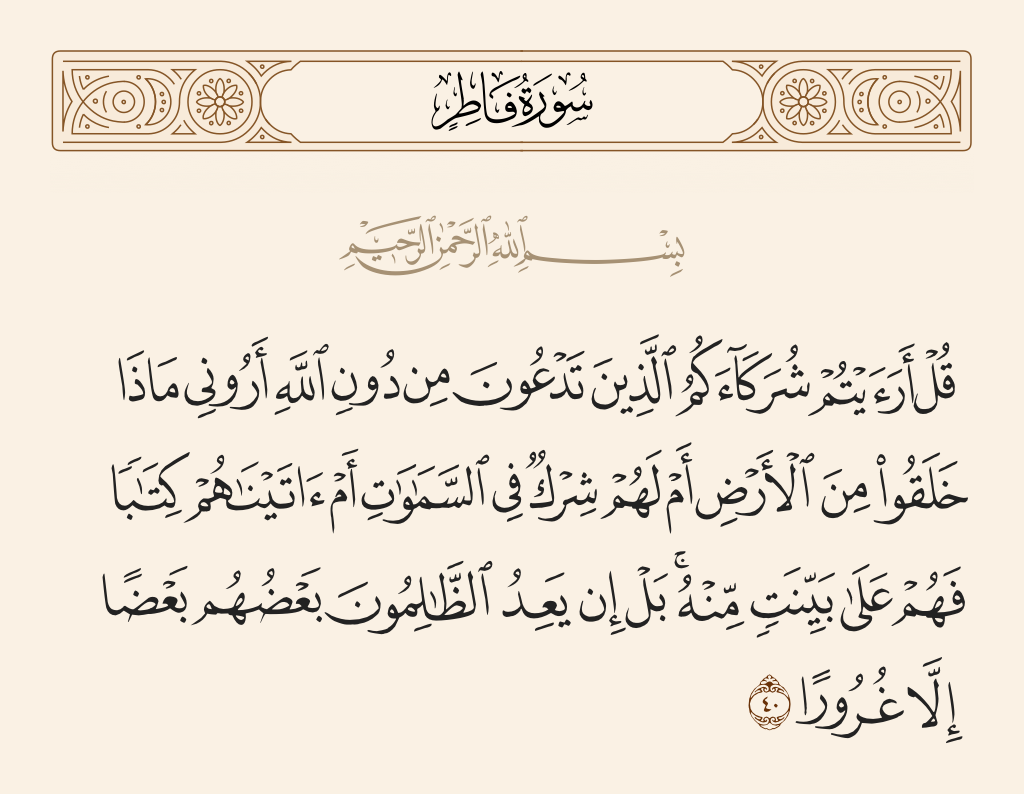 سُورَةُ فَاطِرٍ
بِسْمِ ٱللَّهِ ٱلرَّحْمَٰنِ ٱلرَّحِيمِ
قُلْ أَرَءَيْتُمْ شُرَكَآءَكُمُ ٱلَّذِينَ تَدْعُونَ مِن دُونِ ٱللَّهِ أَرُونِى مَاذَا
خَلَقُوا۟ مِنَ ٱلْأَرْضِ أَمْ لَهُمْ شِرْكٌ فِى ٱلسَّمَٰوَٰتِ أَمْ ءَاتَيْنَٰهُمْ كِتَٰبًا
فَهُمْ عَلَىٰ بَيِّنَتٍ مِّنْهُ ۚ بَلْ إِن يَعِدُ ٱلظَّٰلِمُونَ بَعْضُهُم بَعْضًا
إِلَّا غُرُورًا ٤٠